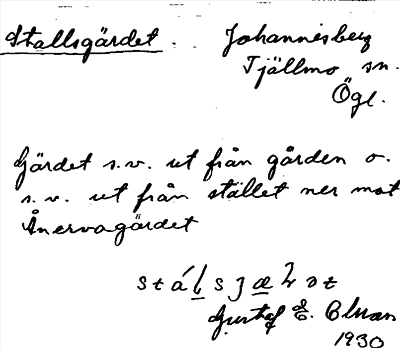 Stallsgärdet. Johannisberg
Tjällmo sn.
Ögl.
Gärdet s.v. ut från gården o.
s.v. ut från stället ner mot
Ånervagärdet
Gustaf E.
1930